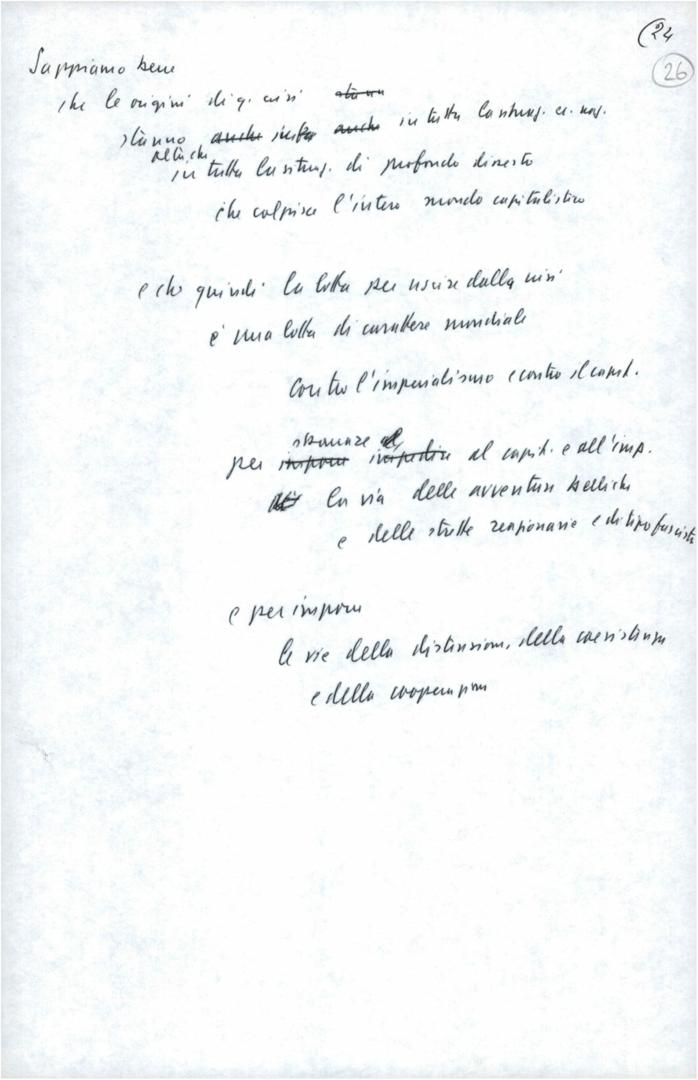 (24
26
Sappiamo bene
che le origini di q. crisi stanno
stanno anche anche in tutta la situaz.
oltre che
in tutta la situaz. di profondo dissesto
che colpisce l'intero mondo capitalistico
e che quindi la lotta per uscire dalla crisi
è una lotta di carattere mondiale
contro l'imperialismo e contro il capit.
sbarrare al
per imporre impedire al capit. e all'imp.
la via delle avventure belliche
e delle strette reazionarie e di tipo fascista
e per imporre
le vie della distensione, della coesistenza
e della cooperazione